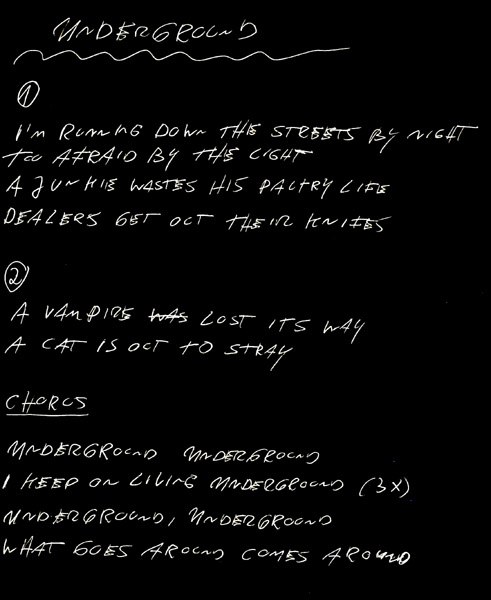 UNDERGROUND
1
I'M RUNNING DOWN THE STREETS BY NIGHT
TOO AFRAID BY THE LIGHT
A JUNKIE WASTES HIS PALTRY LIFE
DEALERS GET OUT THEIR KNIFES
2
A VAMPIRE WAS LOST ITS WAY
A CAT IS OUT TO STRAY
CHORUS
UNDERGROUND UNDERGROUND
I KEEP ON LIVING UNDERGROUND (3X)
UNDERGROUND, UNDERGROUND
WHAT GOES AROUND COMES AROUND